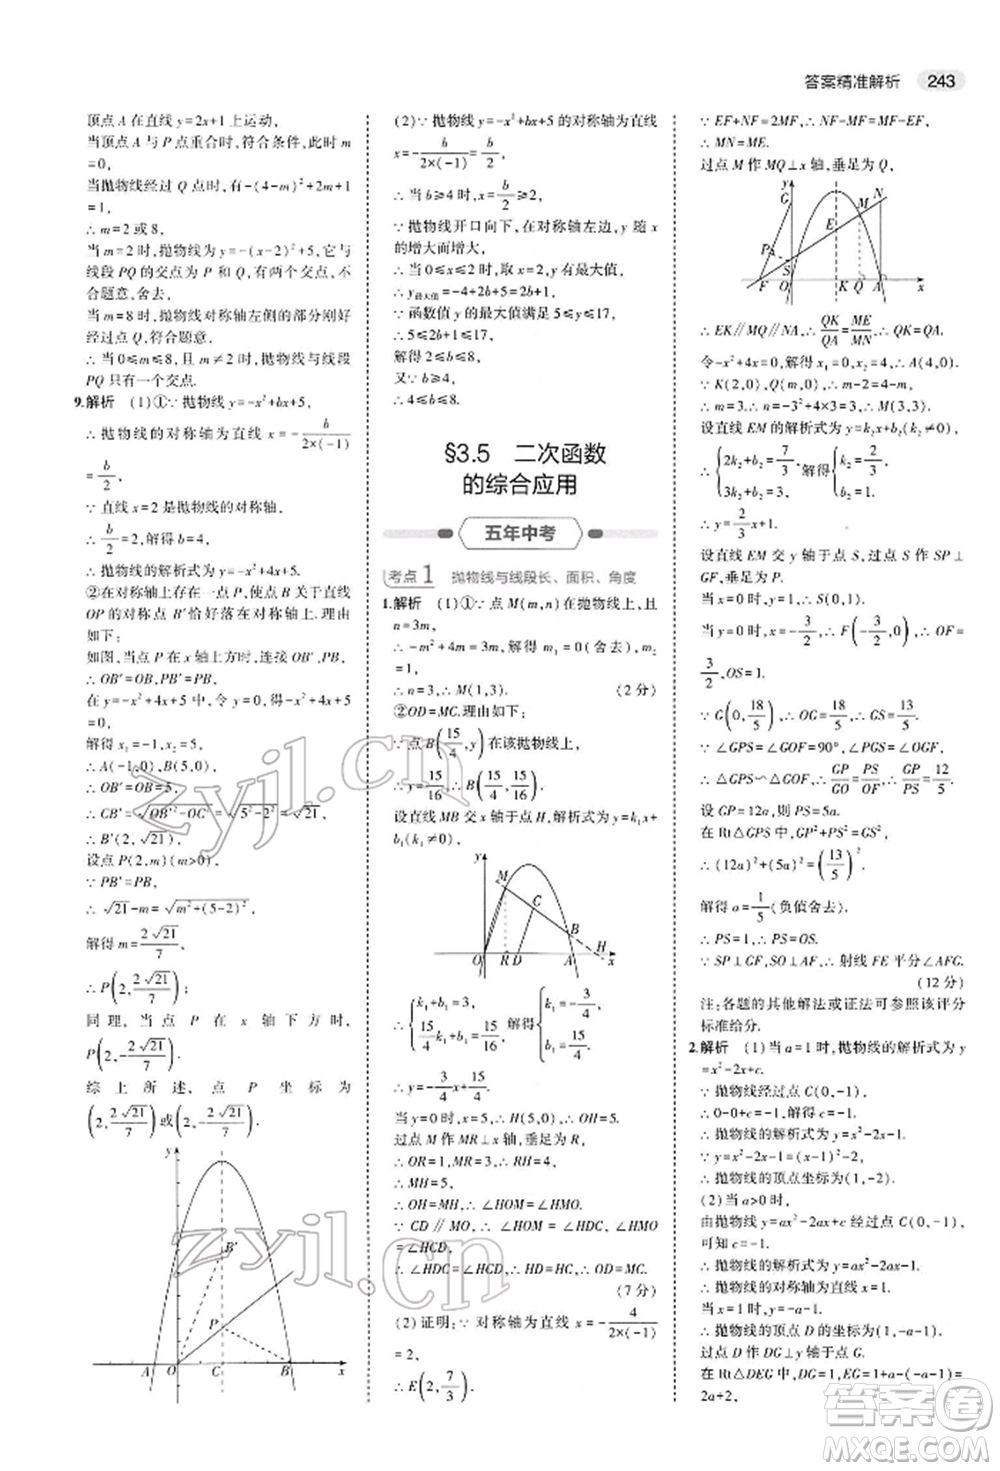 答案精准解析 243
顶点 A 在直线 y=2x+1 上运动.
当顶点 A 与 P 点重合时符合条件,此时 m
=0,
当抛物线经过 Q 点时,有-(4-m)²+m+1
=1,
∴ m=2 或 8,
当 m=2 时,抛物线为 y=-(x-2)²+5,它与
线段 PQ 的交点为 P 和 Q 两个交点,不符
合题意,舍去,
当 m=8 时,抛物线对称轴左侧的部分刚好
经过点 Q,符合题意.
∴ 当 0≤m≤8 时,抛物线与线段
PQ 只有一个交点.
9.解析 (1)①∵ 抛物线 y=-x²+bx+5,
∴ 抛物线的对称轴为直线 x=-b/(2×(-1))
=b/2,
∵ 直线 x=2 是抛物线的对称轴,
∴ b/2=2,∴ b=4,
∴ 抛物线的解析式为 y=-x²+4x+5.
②在对称轴上存在一点 P,使点 B 关于直线
OP 的对称点 B′恰好落在对称轴上.理由
如下:
如图,当点 P 在 x 轴上方时,连接 OB′,PB′,
∴ OB′=OB,PB′=PB,
在 y=-x²+4x+5 中,令 y=0,得-x²+4x+5
=0,
解得 x₁=-1,x₂=5,
∴ A(-1,0),B(5,0),
∴ OB′=OB=5,
∴ CB′=√(OB′²-OC²)=√(5²-2²)=√21,
∴ B′(2,√21),
设点 P(2,m)(m>0),
∵ PB′=PB,
∴ √21-m=√(m²+(5-2)²),
解得 m=2√21/7,
∴ P(2,2√21/7);
同理,当点 P 在 x 轴下方时,
P(2,-2√21/7).
综上所述,点 P 坐标为
(2,2√21/7)或(2,-2√21/7).
y
B′
P
A O C B x
(2)∵ 抛物线 y=-x²+bx+5 的对称轴为直线
x=-b/(2×(-1))=b/2,
∴ 当 b≥4 时,x=b/2≥2,
∵ 抛物线开口向下,在对称轴左侧,y 随 x
的增大而增大,
∴ 当 0≤x≤2 时,x=2 有最大值,
∴ y最大值=-4+2b+5=2b+1,
∵ 函数值 y 的最大值满足 5≤y≤17,
∴ 5≤2b+1≤17,
解得 2≤b≤8,
又∵ b≥4,
∴ 4≤b≤8.
§3.5 二次函数
的综合应用
五年中考
考点 1 抛物线与线段长、面积、角度
1.解析 (1)①∵ 点 M(m,n)在抛物线上,且
n=3m,
∴ -m²+4m=3m,解得 m₁=0(舍去),m₂
=1,
∴ n=3,∴ M(1,3). (2 分)
②OD=MC.理由如下:
∵ 点 B(15/4,y)在该抛物线上,
∴ y=15/16,∴ B(15/4,15/16).
设直线 MB 交 x 轴于点 H,解析式为 y=k₁x+
b₁(k₁≠0),
y
M C B
O R D A H x
∴ {k₁+b₁=3, 15/4k₁+b₁=15/16, 解得{k₁=-3/4, b₁=15/4.
∴ y=-3/4x+15/4.
当 y=0 时,x=5,∴ H(5,0),∴ OH=5.
过点 M 作 MR⊥x 轴,垂足为 R,
∴ OR=1,MR=3,∴ RH=4,
∴ MH=5,
∴ OH=MH,∴ ∠HOM=∠HMO.
∵ CD∥MO,∴ ∠HOM=∠HDC,∠HMO
=∠HCD.
∴ ∠HDC=∠HCD,∴ HD=HC,∴ OD=MC.
(7 分)
(2)证明:∵ 对称轴为直线 x=-4/(2×(-1))
=2,
∴ E(2,7/3).
∵ EF+NF=2MF,∴ NF-MF=MF-EF,
∴ MN=ME.
过点 M 作 MQ⊥x 轴,垂足为 Q,
y
G N M E P S
F O K Q A x
∴ EK∥MQ∥NA,∴ QK/QA=ME/MN,∴ QK=QA.
令-x²+4x=0,解得 x₁=0,x₂=4,∴ A(4,0).
∵ K(2,0),Q(m,0),∴ m-2=4-m,
∴ m=3.当 m=3 时,n=-3²+4×3=3,∴ M(3,3).
设直线 EM 的解析式为 y=k₂x+b₂(k₂≠0),
∴ {2k₂+b₂=7/3, 3k₂+b₂=3, 解得{k₂=2/3, b₂=1.
∴ y=2/3x+1.
设直线 EM 交 y 轴于点 S,过点 S 作 SP⊥
GF,垂足为点 P.
当 x=0 时,y=1,∴ S(0,1).
当 y=0 时,x=-3/2,∴ F(-3/2,0),∴ OF=
3/2,OS=1.
∵ G(0,18/5),∴ OG=18/5,∴ GS=13/5.
∵ ∠GPS=∠GOF=90°,∠PGS=∠OGF,
∴ △GPS∽△GOF,∴ GP/GO=PS/OF,∴ GP/PS=12/5.
设 GP=12a,则 PS=5a.
在 Rt△GPS 中,GP²+PS²=GS²,
∴ (12a)²+(5a)²=(13/5)²,
解得 a=1/5(负值舍去).
∴ PS=1,∴ PS=OS.
∵ SP⊥GF,SO⊥AF,∴ 射线 FE 平分∠AFG.
(12 分)
注:各题的其他解法或证法可参照该评分
标准给分.
2.解析 (1)当 a=1 时,抛物线的解析式为 y
=x²-2x+c.
∵ 抛物线经过点 C(0,-1),
∴ 0-0+c=-1,∴ c=-1,
∴ 抛物线的解析式为 y=x²-2x-1.
∵ y=x²-2x-1=(x-1)²-2,
∴ 抛物线的顶点坐标为(1,-2).
(2)当 a>0 时,
由抛物线 y=ax²-2ax+c 经过点 C(0,-1),
可知 c=-1.
∴ 抛物线的解析式为 y=ax²-2ax-1.
∴ 抛物线的对称轴为直线 x=1.
当 x=1 时,y=a-2a-1=-a-1.
∴ 抛物线的顶点 D 的坐标为(1,-a-1).
过点 D 作 DG⊥EF,垂足为 G.
在 Rt△DEG 中,DG=1,EG=a-1-(-a-1)=
2a+2,
zyjl.cn
zyjl.cn
答案圈
MXQE.COM